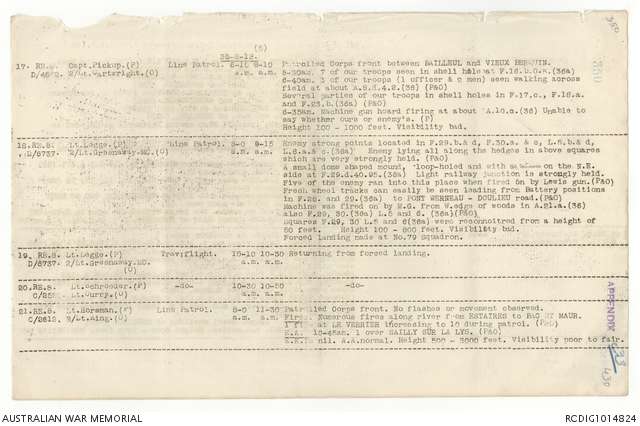 (6)
30-8-18.
17. RE.8. Capt.Pickup.(P) Line Patrol. 6-10 8-10 Patrolled Corps front between BAILLEUL and VIEUX BERQUIN.
D/4692. 2/Lt.Cartwright.(O) a.m. a.m. 6-30am. 7 of our troops seen in shell hole at F.16.b.0.4.(36a)
6-40am. 3 of our troops (1 officer & men) seen walking across
field at about A.8.d.4.2.(36) (P&O)
Several parties of our troops in shell holes in F.17.c., F.18.a.
and F.23.b.(36a) (P&O)
6-35am. Machine gun heard firing at about A.10.c.(36) Unable to
say whether ours or enemy's. (P)
Height 100 - 1000 feet. Visibility bad.
18. RE.8. Lt.Legge.(P) Line Patrol. 8-0 8-15 Enemy strong points located in F.29.b.& d, F.30.a. & c, L.5.b.& d,
D/6737. 2/Lt.Greenaway.MC.(O) a.m. a.m. L.6.a.& c.(36a) Enemy lying all along the hedges in above squares
which are very strongly held. (P&O)
A small dome shaped mound, loop-holed and with on the N.E.
side at F.29.d.40.95.(36a) Light railway junction is strongly held.
Five of the enemy ran into this place when fired on by Lewis gun.(P&O)
Fresh wheel tracks can easily be seen leading from Battery positions
in F.28. and 29.(36a) to PONT WERNEAU - DOULIEU road.(P&O)
Machine was fired on by M.G. from W.edge of woods in A.21.a.(36)
also F.29, 30.(36a) L.5 and 6. (36a)(P&O)
Squares F.29, 30 L.5 and 6(36a) were reconnoitred from a height of
50 feet. Height 100 - 800 feet. Visibility bad.
Forced landing made at No.79 Squadron.
19. RE.8. Lt.Legge.(P) Trav:flight. 10-10 10-30 Returning from forced landing.
D/6737. 2/Lt.Greenaway.MC. a.m. a.m.
(O)
20. RE.8. Lt.Schroeder.(P) -do- 10-30 10-50 -do-
Lt.Curry.(O) a.m. a.m.
21. RE.8. Lt.Horsman.(P) Line Patrol. 8-0 11-30 Patrolled Corps front. No flashes or movement observed.
C/2612. Lt.King.(O) a.m. a.m. Fires. Numerous fires along river from ESTAIRES to BAC ST MAUR.
1 at LE VERRIER increasing to 10 during patrol. (P&O)
E.A. 10-45am. 1 over SAILLY SUR LA LYS. (P&O)
nil. A.A.normal. Height 500 - 3000 feet. Visibility poor to fair.
APPENDIX
350
430
AUSTRALIAN WAR MEMORIAL
RCDIG1014824